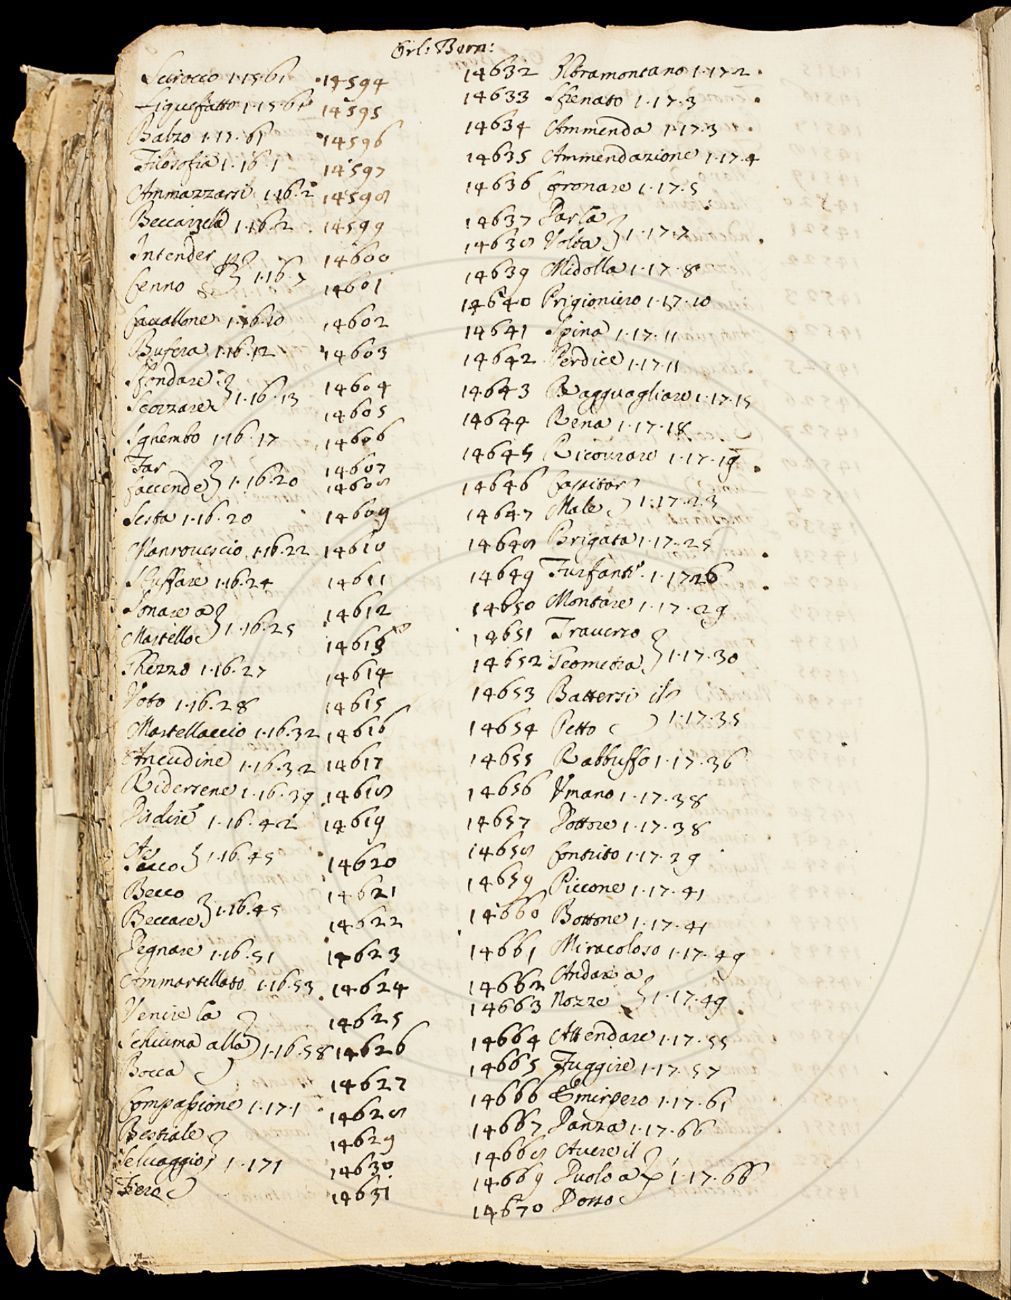 Orl: Bern:
Scirocco 1·15·61 14594
14595
Balzo 1·17·61 14596
Filosofia 1·16·1 14597
Ammazzarsi 1·16·2 14598
1·16·2 14599
Intender 14600
Cenno 1·16·7 14601
Cavallone 1·16·10 14602
Bufera 1·16·12 14603
Sfondare 14604
Scozzare 1·16·13 14605
Sghembo 1·16·17 14606
Far 14607
faccende 1·16·20 14608
Sesta 1·16·20 14609
Manrovescio 1·16·22 14610
1·16·24 14611
Sonare a 14612
Martello 1·16·25 14613
1·16·27 14614
Voto 1·16·28 14615
Martellaccio 1·16·32 14616
Ancudine 1·16·32 14617
Ridersene 1·16·39 14618
Disdire 1·16·42 14619
14620
Secco 1·16·45
Becco 14621
Beccare 1·16·45 14622
Pegnare 1·16·51 14623
Ammartellato 1·16·53 14624
Venire la 14625
Schiuma alla 1·16·58 14626
Bocca 14627
Compassione 1·17·1 14628
Bestiale 14629
Selvaggio 1·17·1 14630
Fero 14631
14632 Oltramontano 1·17·2
14633 Sfrenato 1·17·3
14634 Ammenda 1·17·3
14635 Ammendazione 1·17·4
14636 Coronare 1·17·5
14637 Dar la
14638 Volta 1·17·7
14639 Midolla 1·17·8
14640 Prigioniero 1·17·10
14641 Spina 1·17·11
14642 Perdice 1·17·11
14643 Ragguagliare 1·17·15
14644 Rena 1·17·18
14645 Ricovrare 1·17·19
14646 Capitar
14647 Male 1·17·23
14648 Brigata 1·17·25
14649 Furfanti 1·17·26
14650 Montare 1·17·29
14651 Traverso
14652 Geometra 1·17·30
14653 Battersi il
14654 Petto 1·17·35
14655 Rabbuffo 1·17·36
14656 Umano 1·17·38
14657 Dottore 1·17·38
14658 Contrito 1·17·39
14659 Piccone 1·17·41
14660 Bottone 1·17·41
14661 Miracoloso 1·17·49
14662 Andare a
14663 Nozze 1·17·49
14664 Attendare 1·17·55
14665 Fuggire 1·17·57
14666 Emispero 1·17·61
14667 Danza 1·17·66
14668 Avere il
14669 Duolo a 1·17·66
14670 Dosso